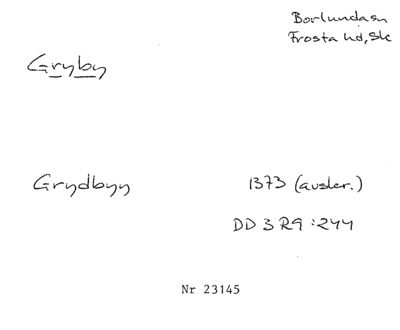 Borlunda sn
Frosta hd, Sk
Gryby
Grydbyn 1373 (avskr.)
DD 3 R9 :244
Nr 23145